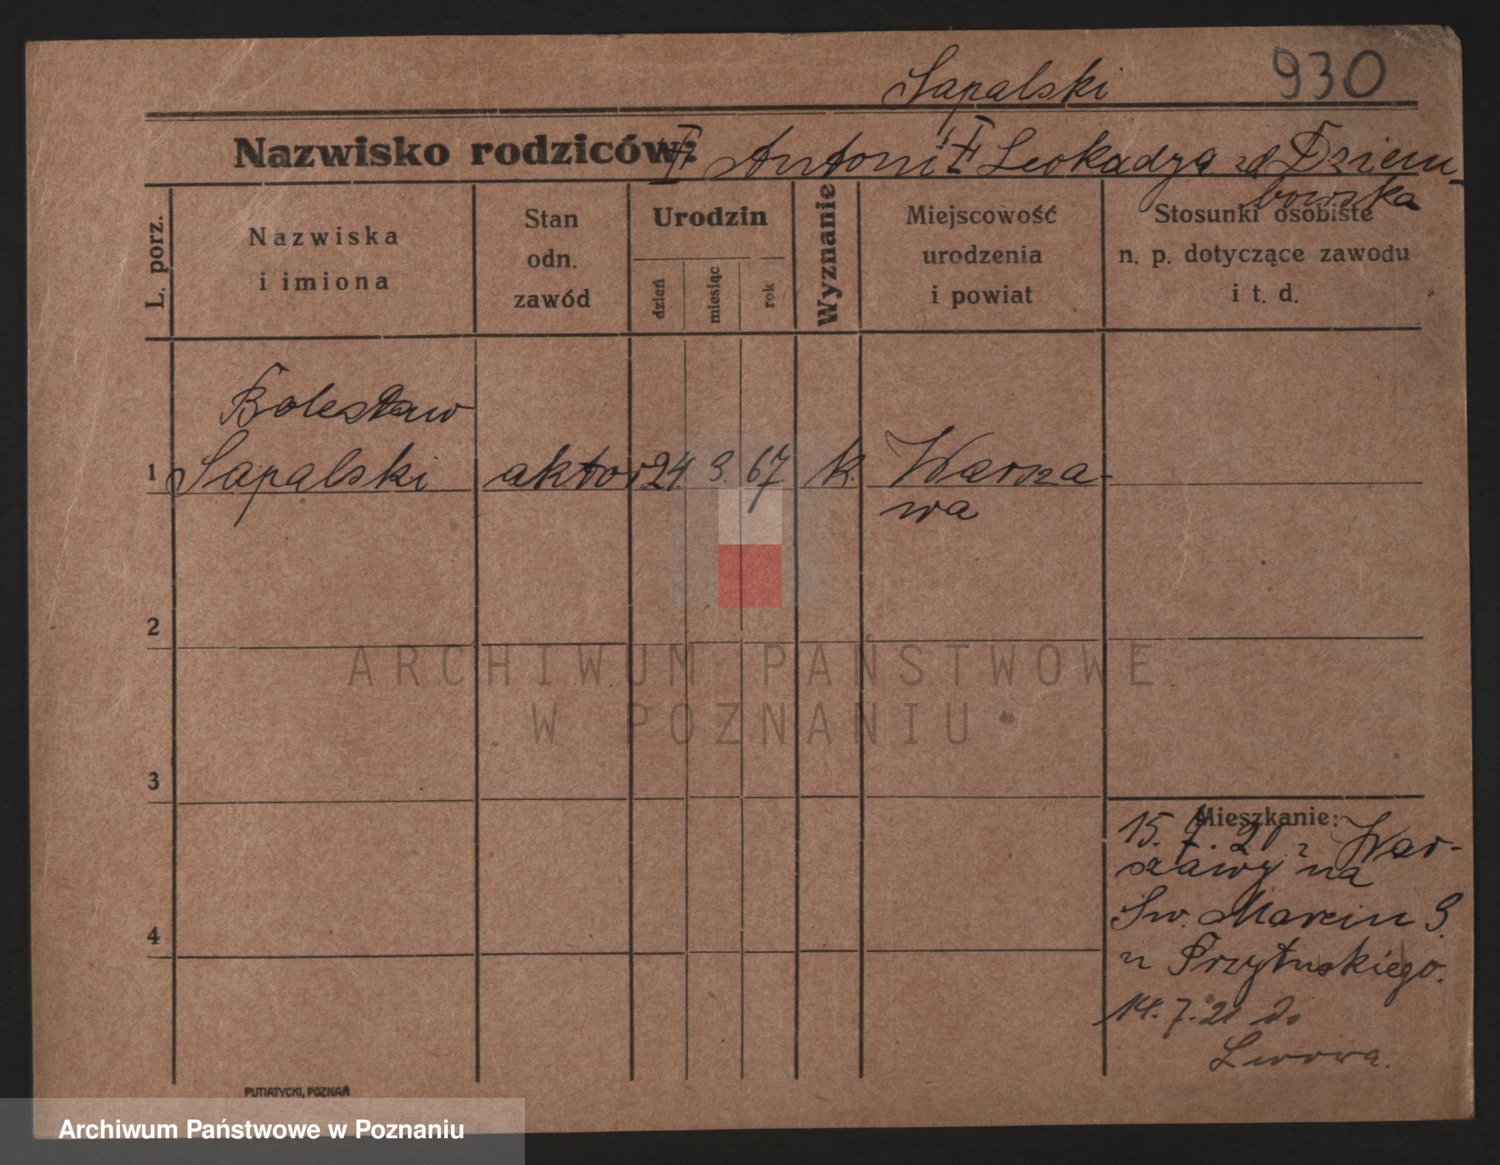 Sapalski 930
Nazwisko rodziców: I Antoni II Leokadya zd Dziem-
bowska
L. porz.
Nazwiska
i imiona
Stan
odn.
zawód
Urodzin
dzień
miesiąc
rok
Wyznanie
Miejscowość
urodzenia
i powiat
Stosunki osobiste
n. p. dotyczące zawodu
i t. d.
Bolesław
1 Sapalski aktor 24. 3. 67 k. Warsza-
wa
2
ARCHIWUM PAŃSTWOWE
W POZNANIU
3
Mieszkanie:
15. 21 z War-
szawy na
Św. Marcin 3.
u Przytuskiego.
4
14. 7. 21 do
Lwowa.
PUTIATYCKI, POZNAŃ
Archiwum Państwowe w Poznaniu